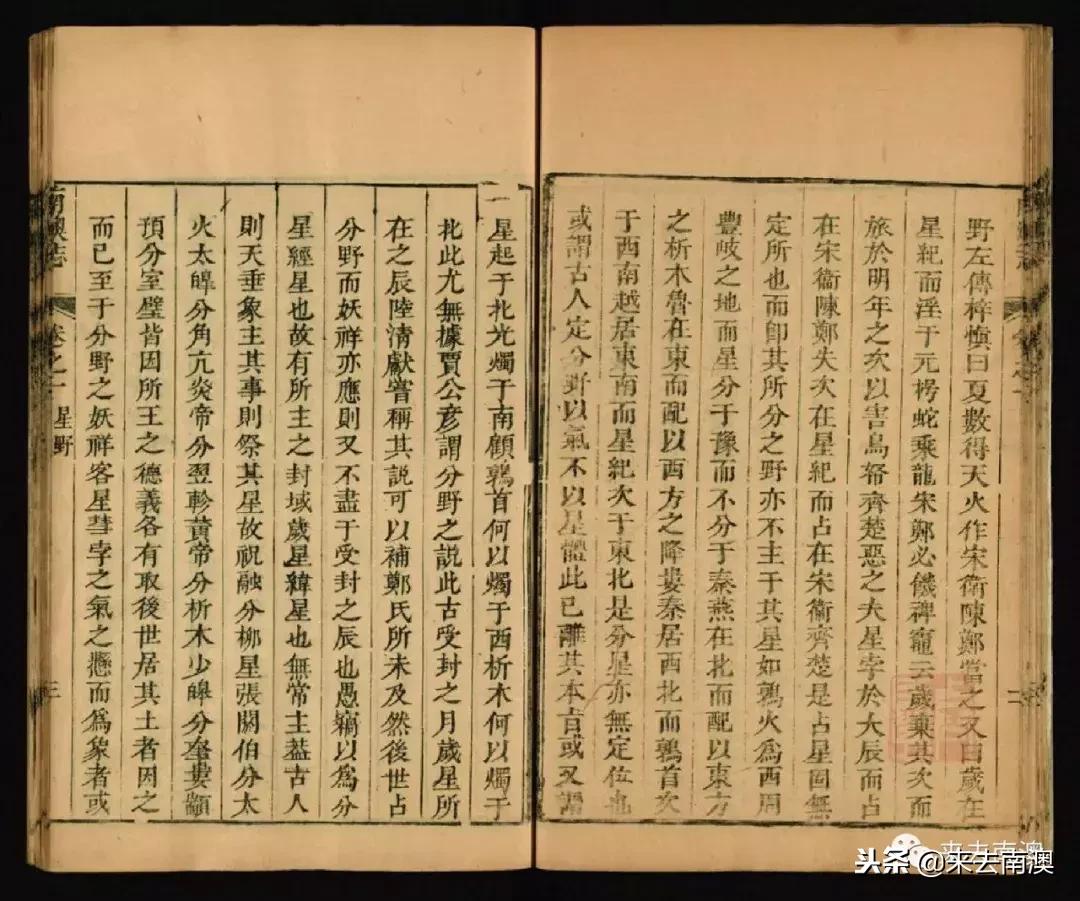 野左傳梓慎曰夏數得天火作宋衞陳鄭當之又曰歲在
星紀而淫于元枵蛇乘龍宋鄭必饑裨竈云歲棄其次而
旅於明年之次以害鳥帑齊楚惡之夫星孛於大辰而占
在宋衞陳鄭失次在星紀而占在宋衞齊楚是占星固無
定所也而即其所分之野亦不主于其星如鶉火爲西周
豐岐之地而星分于豫而不分于秦燕在北而配以東方
之析木魯在東而配以西方之降婁秦居西北而鶉首次
于西南越居東南而星紀次于東北是分星亦無定位也
或謂古人定分野以氣不以星體此已離其本旨或又謂
一星起于北光燭于南顧鶉首何以燭于西析木何以燭于
北此尤無據賈公彥謂分野之説此古受封之月歲星所
在之辰陸清獻嘗稱其説可以補鄭氏所未及然後世占
分野而妖祥亦應則又不盡于受封之辰也愚竊以爲分
星經星也故有所主之封域歲星緯星也無常主葢古人
則天垂象主其事則祭其星故祝融分栁星張閼伯分太
火太皡分角亢炎帝分翌軫黃帝分析木少皡分奎婁顓
頊分室壁皆因所王之德義各有取後世居其土者因之
而已至于分野之妖祥客星彗孛之氣之懸而爲象者或
南澳志
卷之一
星野
三
二
来去南澳
头条@来去南澳